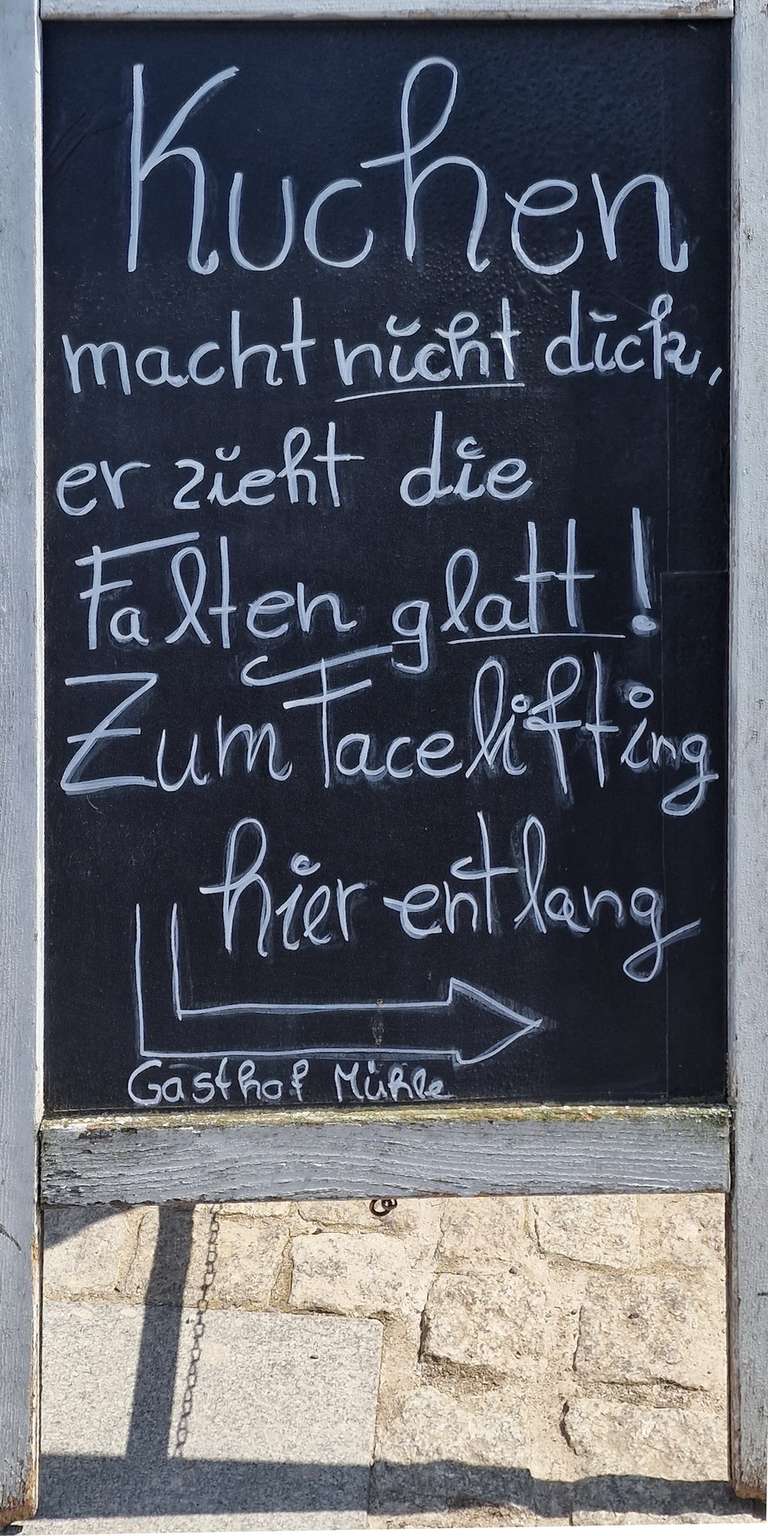 Kuchen
macht nicht dick,
er zieht die
Falten glatt!
Zum Facelifting
hier entlang
Gasthof Mühle